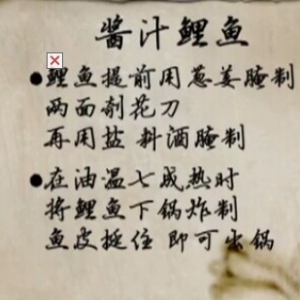 酱汁鲤鱼
●鲤鱼提前用葱姜腌制
两面剞花刀
再用盐 料酒腌制
●在油温七成热时
将鲤鱼下锅炸制
鱼皮挺住 即可出锅